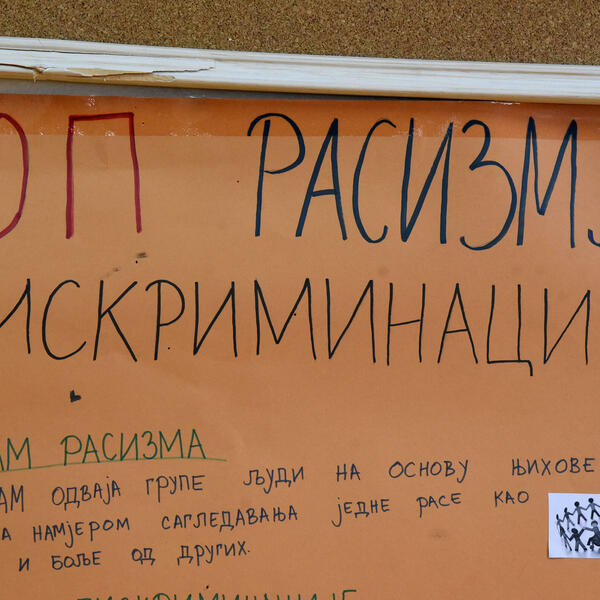 ОП РАСИЗМ
ИСКРИМИНАЦИ
АМ РАСИЗМА
АМ ОДВАЈА ГРУПЕ ЉУДИ НА ОСНОВУ ЊИХОВЕ
А НАМЈЕРОМ САГЛЕДАВАЊА ЈЕДНЕ РАСЕ КАО
И БОЉЕ ОД ДРУГИХ.